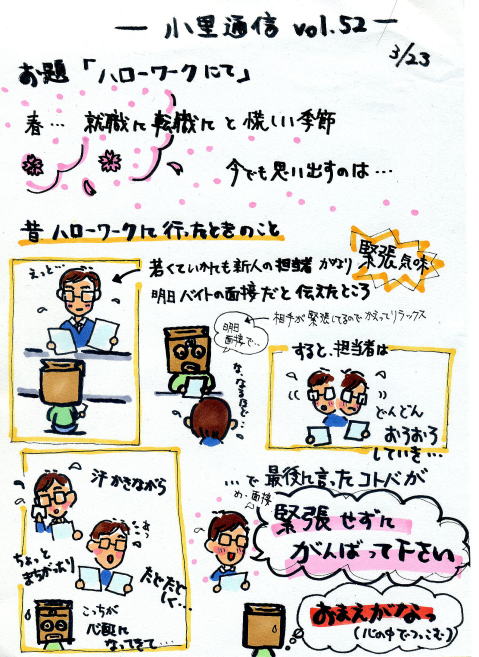 小里通信 vol.52
3/23
お題「ハローワークにて」
春… 就職に転職にと慌しい季節
今でも思い出すのは…
昔ハローワークに行ったときのこと
えっと…
若くていかにも新人の担当者がかなり
緊張気味
明日バイトの面接だと伝えたところ
相手が緊張してるのでかえってリラックス
明日
面接で…
な、なるほど…
すると、担当者は
どんどん
おろおろ
していき…
汗かきながら
ちょっと
まちがったり
あっ
たどたど
しく…
こっちが
心配に
なってきて…
…で最後に言ったコトバが
め・面接
緊張せずに
がんばって下さい
おまえがなっ
(心の中でつっこむ)